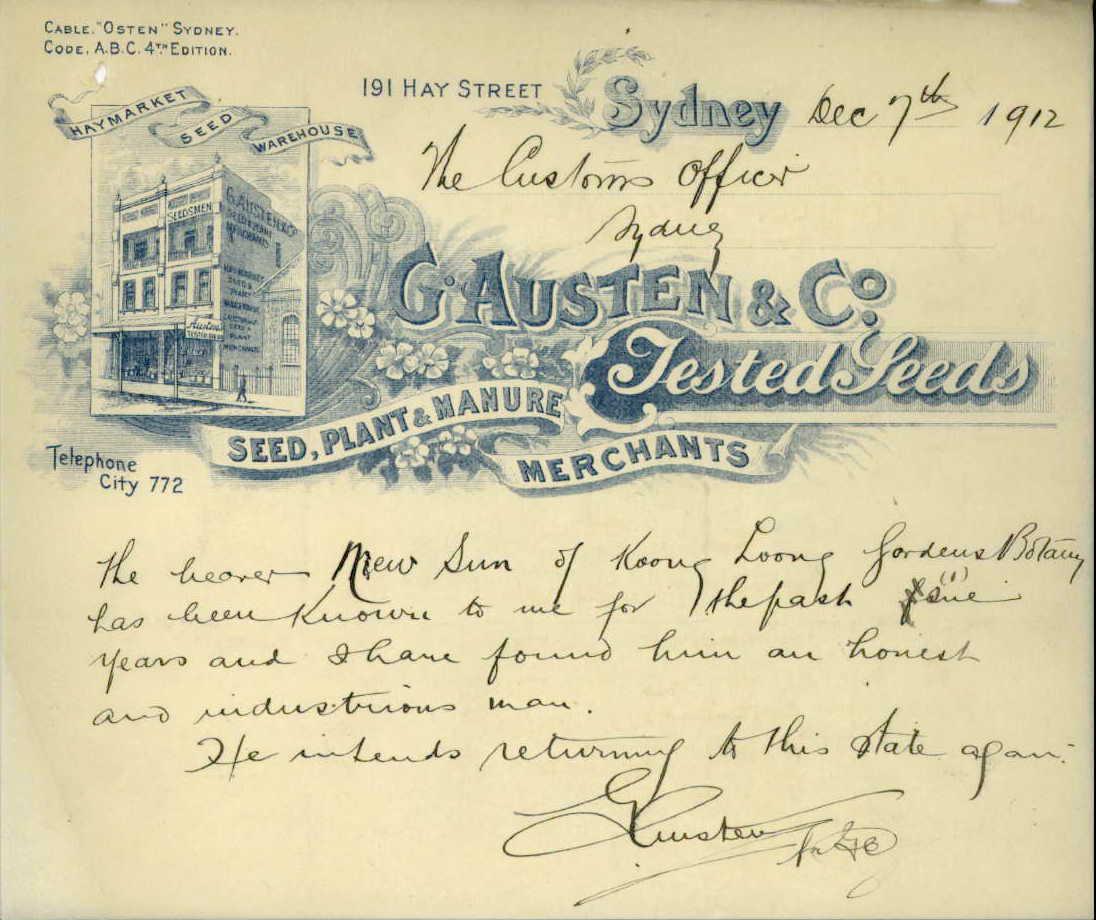 CABLE. "OSTEN" SYDNEY.
CODE. A.B.C. 4TH EDITION.
HAYMARKET SEED WAREHOUSE
191 HAY STREET Sydney Dec 7th 1912
The Customs Officer
Sydney
SEEDSMEN
G. AUSTEN & CO
SEED & PLANT
MERCHANTS
G. AUSTEN & CO.
Tested Seeds
SEED, PLANT & MANURE
MERCHANTS
Telephone
City 772
The bearer Mew Sun of Koong Loong Gardens Botany
has been known to me for the past five
years and I have found him an honest
and industrious man.
He intends returning to this state again.
G Austen